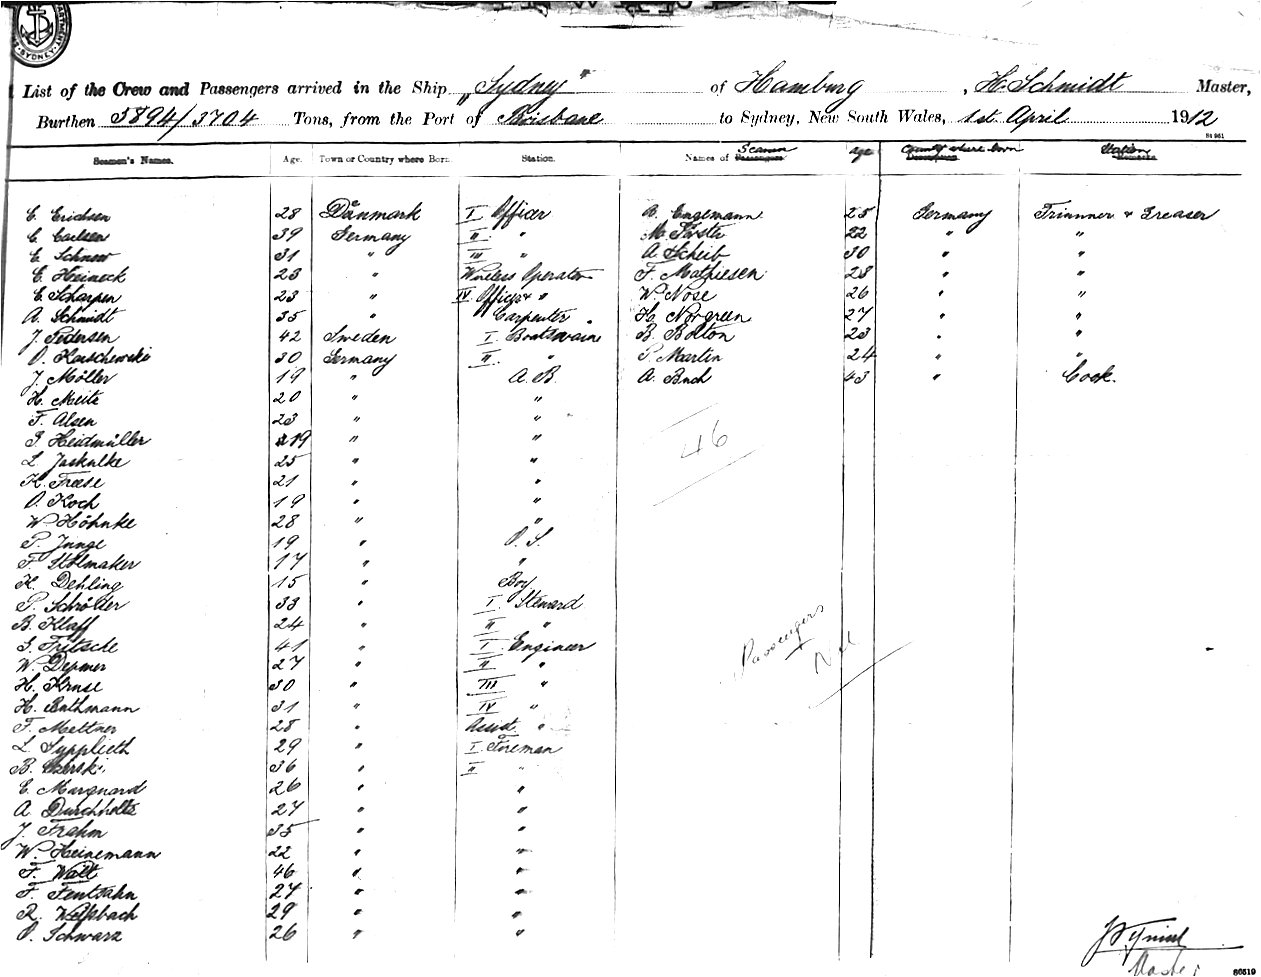 SYDNEY
List of the Crew and Passengers arrived in the Ship "Sydney" of Hamburg, H. Schmidt Master,
Burthen 3894/3704 Tons, from the Port of Brisbane to Sydney, New South Wales, 1st April 1912
84961
Seamen's Names. Age. Town or Country where Born. Station. Names of Seamen Age Country where born Station
C. Erichsen 28 Danmark I Officer B. Engemann 25 Germany Trimmer & Greaser
C. Carlsen 39 Germany II " M. Förster 22 " "
C. Schnoor 31 " III " A. Scheib 30 " "
C. Heineck 23 " Wireless Operator F. Mathiesen 28 " "
C. Scharpen 23 " IV Officer " W. Nose 26 " "
A. Schmidt 35 " Carpenter H. Norgreen 27 " "
J. Pedersen 42 Sweden I Boatswain B. Bolton 23 " "
O. Karschewski 30 Germany II " P. Martin 24 " "
J. Möller 19 " A.B. A. Buch 43 " Cook.
H. Meitz 20 " "
F. Alsen 23 " "
Heidmüller 19 " "
46
L. Jaskulke 25 " "
K. Freese 21 " "
O. Koch 19 " "
W. Höhnke 28 " "
P. Junge 19 " O.S.
F. Stolmaker 17 " "
K. Dehling 15 " Boy
P. Schröder 33 " I Steward
B. Klaff 24 " II "
G. Fritsche 41 " I Engineer
Passengers
Nil
W. Depmer 27 " II "
H. Kruse 30 " III "
H. Buthmann 31 " IV "
F. Meltner 28 " Assist. "
L. Sypplieth 29 " I Fireman
B. 36 " II "
C. Marquard 26 " "
A. Durchholtz 27 " "
J. Frahm 35 " "
W. Heinemann 22 " "
F. Watt 46 " "
F. Fentzahn 27 " "
R. Welsbach 29 " "
O. Schwarz 26 " "
Master
86519